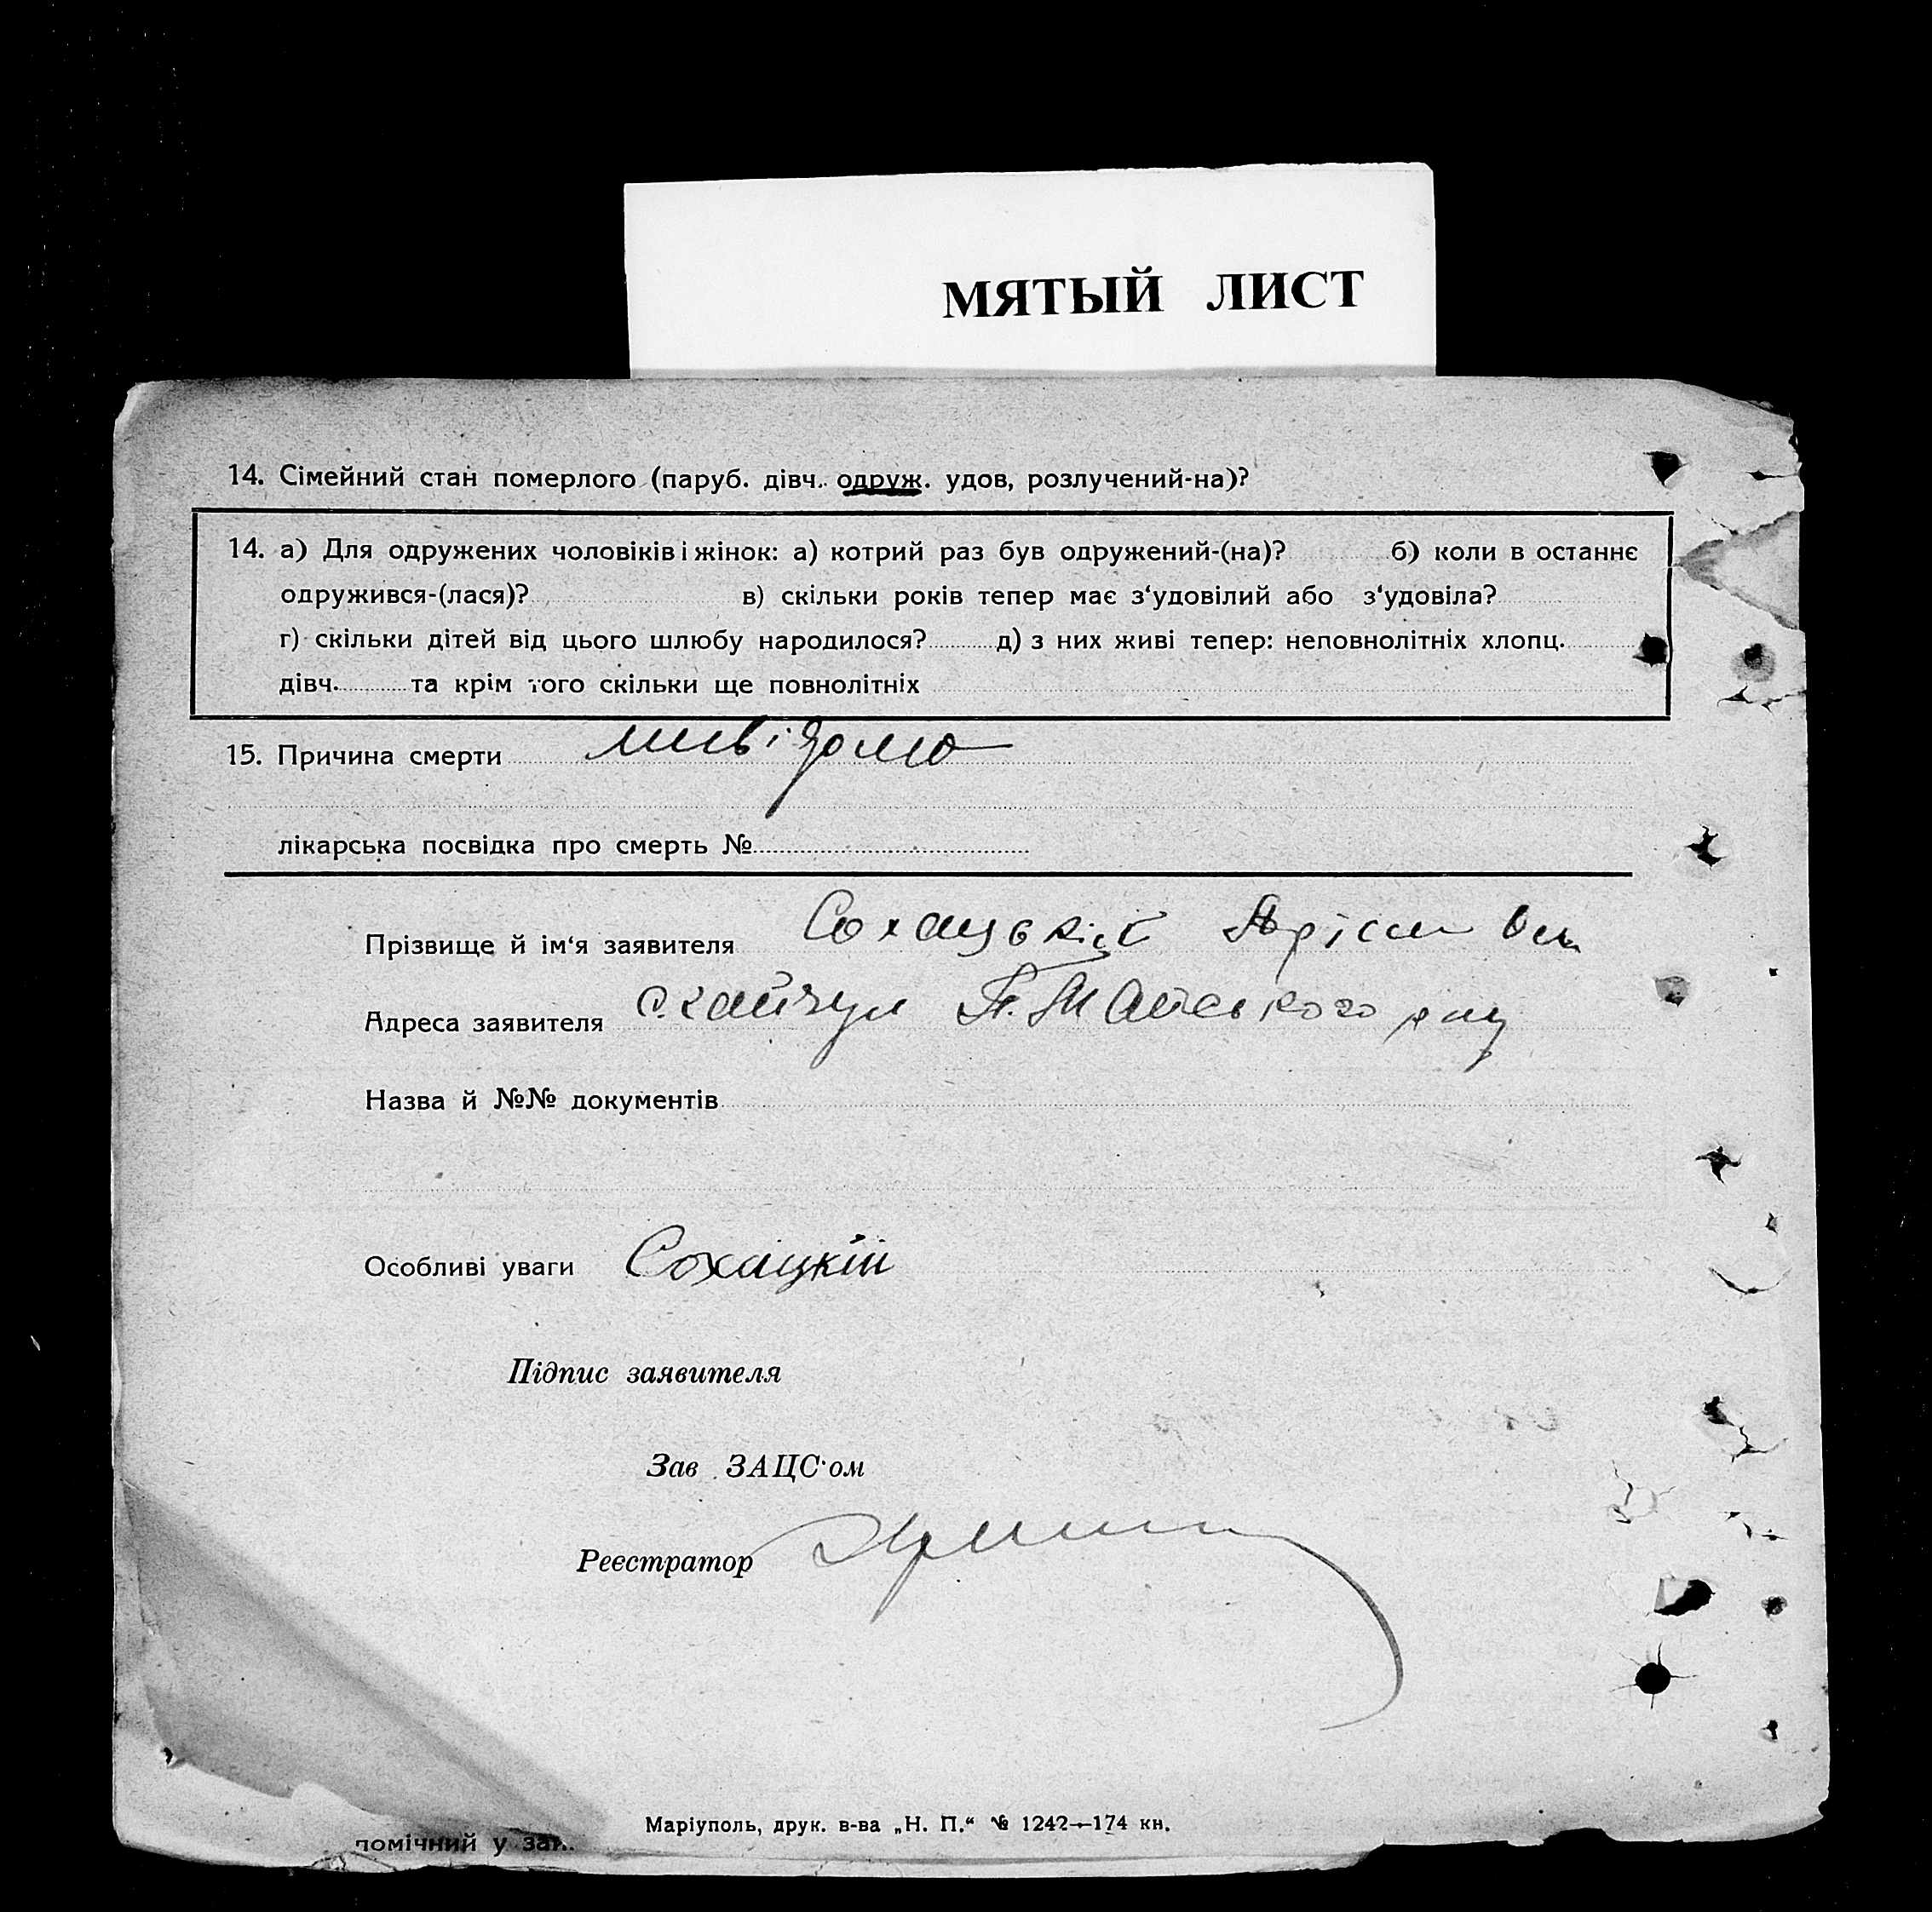 МЯТЫЙ ЛИСТ
14. Сімейний стан померлого (паруб. дівч. одруж. удов, розлучений-на)?
14. а) Для одружених чоловіків і жінок: а) котрий раз був одружений-(на)? б) коли в останнє
одружився-(лася)? в) скільки років тепер має з‘удовілий або з‘удовіла?
г) скільки дітей від цього шлюбу народилося? д) з них живі тепер: неповнолітніх хлопц.
дівч. та крім того скільки ще повнолітніх
15. Причина смерти невідомо
лікарська посвідка про смерть №
Прізвище й ім‘я заявителя Сохацький
Адреса заявителя с. Кайчул
Назва й №№ документів
Особливі уваги Сохацкій
Підпис заявителя
Зав ЗАЦС‘ом
Реєстратор
Маріуполь, друк. в-ва „Н. П.“ № 1242—174 кн.
помічний у